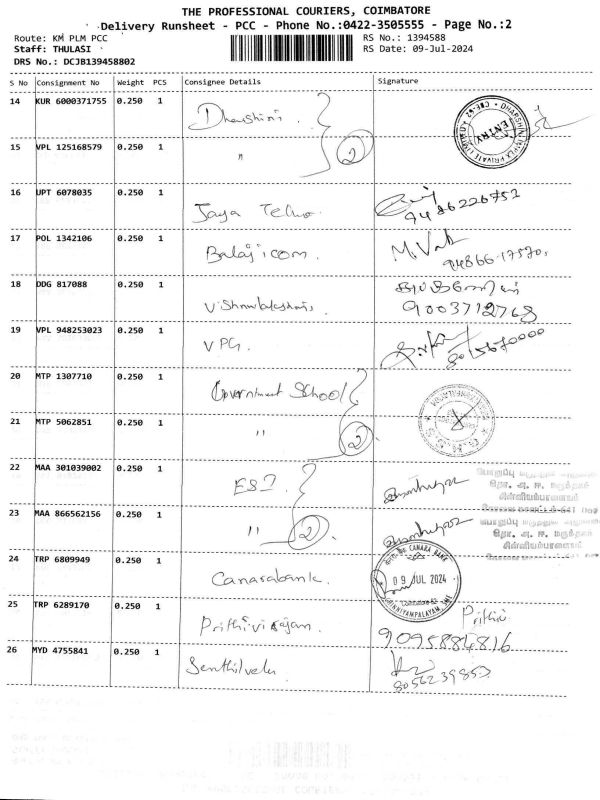 THE PROFESSIONAL COURIERS, COIMBATORE
Delivery Runsheet - PCC - Phone No.:0422-3505555 - Page No.:2
Route: KM PLM PCC
RS No.: 1394588
Staff: THULASI
RS Date: 09-Jul-2024
DRS No.: DCJB139458802
S No Consignment No Weight PCS Consignee Details Signature
14 KUR 6000371755 0.250 1 Dharshini
15 VPL 125168579 0.250 1 " 2
ENTRY
16 UPT 6078035 0.250 1 Jaya Techno. 9486226752
17 POL 1342106 0.250 1 Balaji com. 94866-17520.
18 DDG 817088 0.250 1
9003712768
19 VPL 948253023 0.250 1 VPG.
20 MTP 1307710 0.250 1 Government School
21 MTP 5062851 0.250 1 " 2
22 MAA 301039002 0.250 1 ESI.
23 MAA 866562156 0.250 1 " 2
24 TRP 6809949 0.250 1 Canarabank.
CANARA BANK
09 JUL 2024
CHINNIYAMPALAYAM
25 TRP 6289170 0.250 1 Prithivirajam. Prithivi
9095884816
26 MYD 4755841 0.250 1 Senthilvelu
8056239853